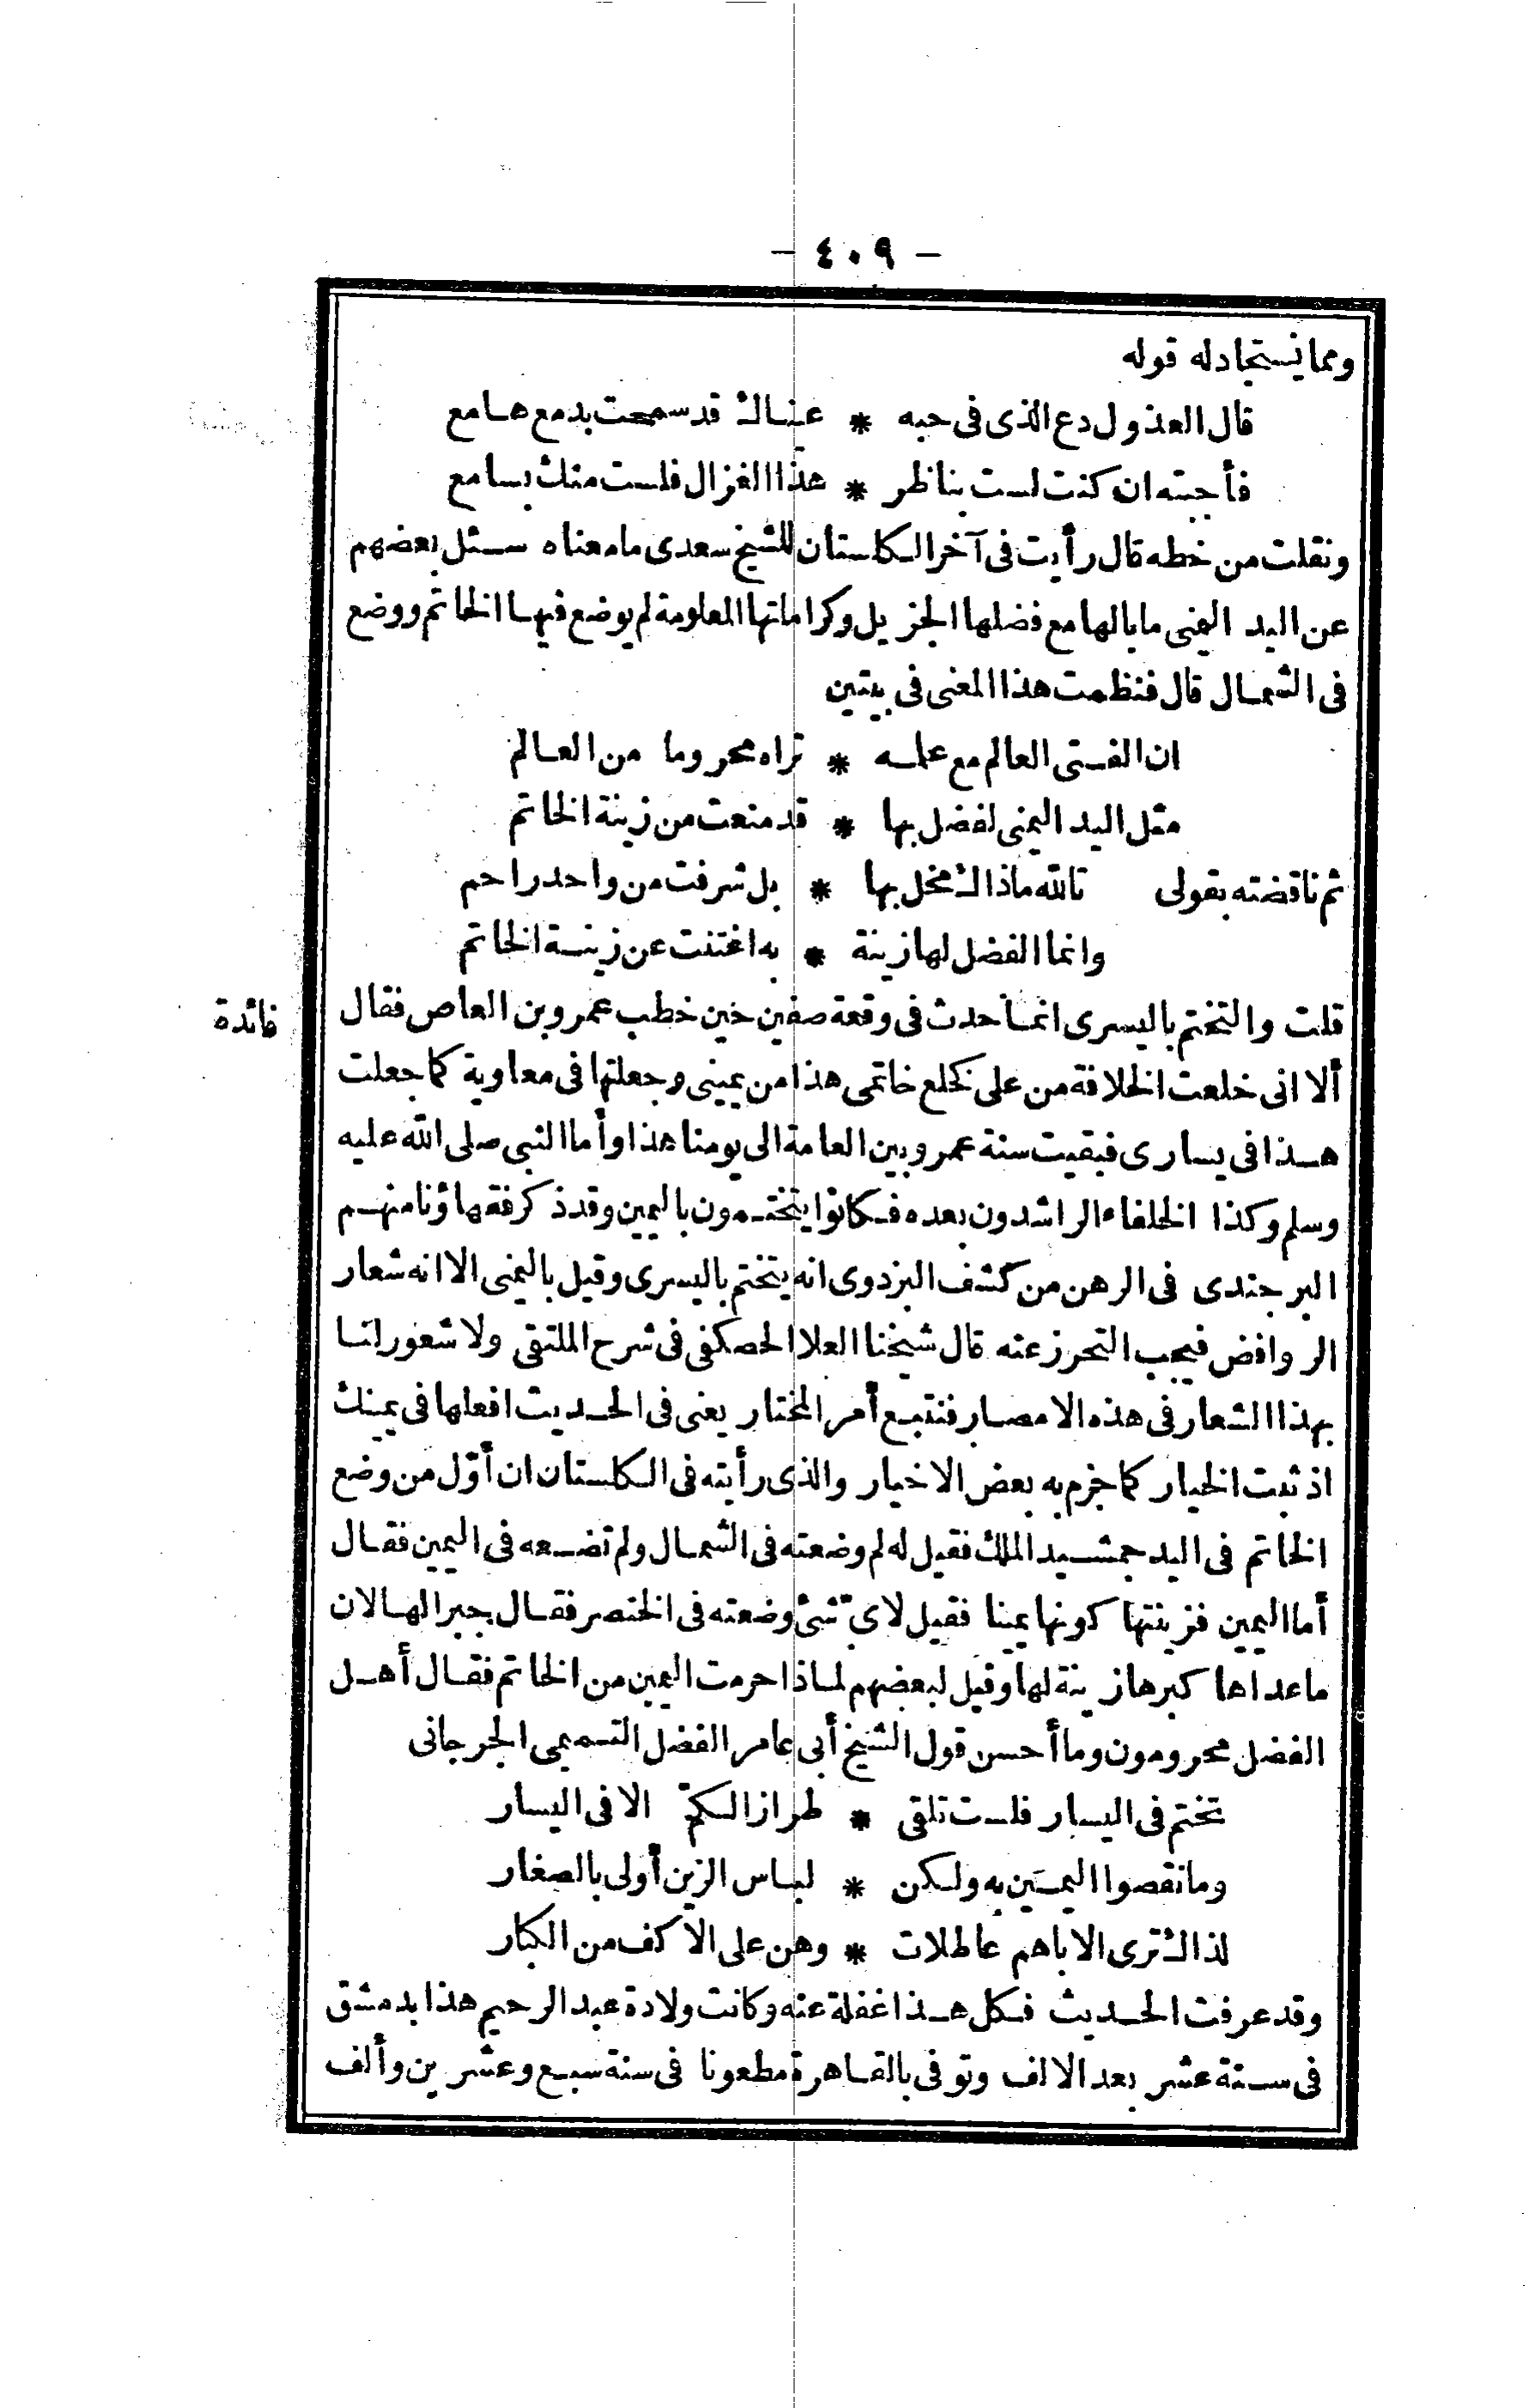 - ٤٠٩ -
ومما يستجاد له قوله
قال العذول دع الذى فى حبه * عيناك قد سمحت بدمع هامع
فأجبته ان كنت لست بناظر * هذا الغزال فلست منك بسامع
ونقلت من خطه قال رأيت فى آخر الكلستان للشيخ سعدى مامعناه سئل بعضهم
عن اليد اليمنى ما بالها مع فضلها الجزيل وكراماتها المعلومة لم يوضع فيها الخاتم ووضع
فى الشمال قال فنظمت هذا المعنى فى بيتين
ان الفتى العالم مع علمه * تراه محروما من العالم
مثل اليد اليمنى لفضل بها * قد منعت من زينة الخاتم
ثم ناقضته بقولى تالله ماذاك مخل بها * بل شرفت من واحد راحم
وانما الفضل لها زينة * به اغتنت عن زينة الخاتم
قلت والتختم باليسرى انما حدث فى وقعة صفين حين خطب عمرو بن العاص فقال
فائدة
ألا انى خلعت الخلافة من على كخلع خاتمى هذا من يمينى وجعلتها فى معاوية كما جعلت
هذا فى يسارى فبقيت سنة عمرو بين العامة الى يومنا هذا وأما النبى صلى الله عليه
وسلم وكذا الخلفاء الراشدون بعده فكانوا يتختمون باليمين وقد ذكر فقهاؤنا منهم
البرجندى فى الرهن من كشف البزدوى انه يتختم باليسرى وقيل باليمنى الا انه شعار
الروافض فيجب التحرز عنه قال شيخنا العلا الحصكفى فى شرح الملتقى ولا شعور لنا
بهذا الشعار فى هذه الامصار فنتبع أمر المختار يعنى فى الحديث افعلها فى يمينك
اذ ثبت الخيار كما جزم به بعض الاخيار والذى رأيته فى الكلستان ان أوّل من وضع
الخاتم فى اليد جمشيد الملك فقيل له لم وضعته فى الشمال ولم تضعه فى اليمين فقال
أما اليمين فزينتها كونها يمينا فقيل لاىّ شئ وضعته فى الخنصر فقال جبرا لها لان
ما عداها كبرها زينة لها وقيل لبعضهم لماذا حرمت اليمين من الخاتم فقال أهل
الفضل محرومون وما أحسن قول الشيخ أبى عامر الفضل التميمى الجرجانى
تختم فى اليسار فلست تلقى * طراز الكمّ الا فى اليسار
وما نقصوا اليمين به ولكن * لباس الزين أولى بالصغار
لذاك ترى الاباهم عاطلات * وهن على الاكف من الكبار
وقد عرفت الحديث فكل هذا غفلة عنه وكانت ولادة عبد الرحيم هذا بدمشق
فى سنة عشر بعد الالف وتوفى بالقاهرة مطعونا فى سنة سبع وعشرين وألف